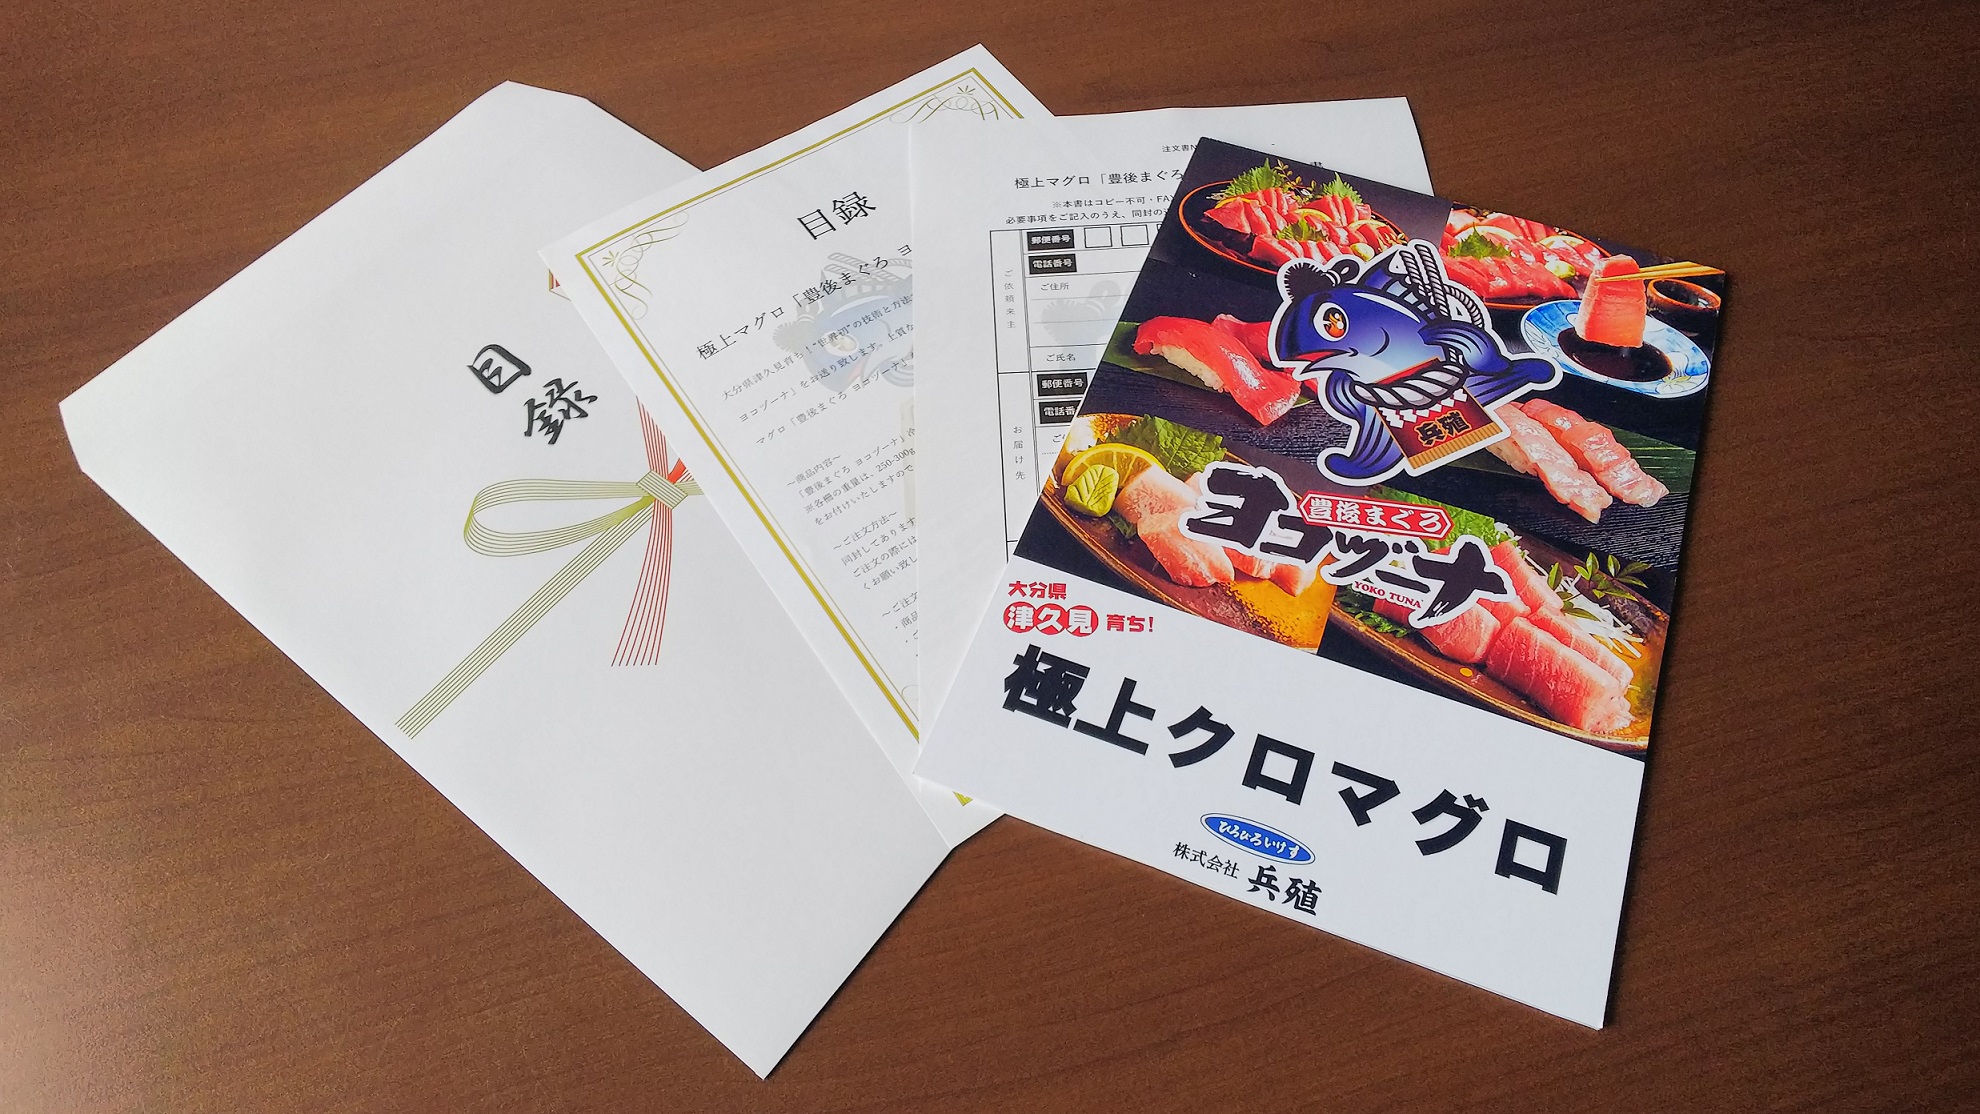 目録
目録
極上マグロ「豊後まぐろ ヨ
大分県津久見育ち!“世界初”の技術と方法
ヨコヅーナ』をお送り致します。上質な
マグロ「豊後まぐろ ヨコヅーナ」
~商品内容~
「豊後まぐろ ヨコヅーナ」冷
※各柵の重量は、250-300g
をお付けいたしますので
~ご注文方法~
同封してあります
ご注文の際には
くお願い致し
~ご注文
・商品
注文書N
極上マグロ「豊後まぐろ
書
※本書はコピー不可・FAX
必要事項をご記入のうえ、同封の
ご依頼主
郵便番号
電話番号
ご住所
ご氏名
お届け先
郵便番号
電話番
兵殖
豊後まぐろ
ヨコヅーナ
YOKO TUNA
大分県
津久見育ち!
極上クロマグロ
ひろびろいけす
株式会社 兵殖